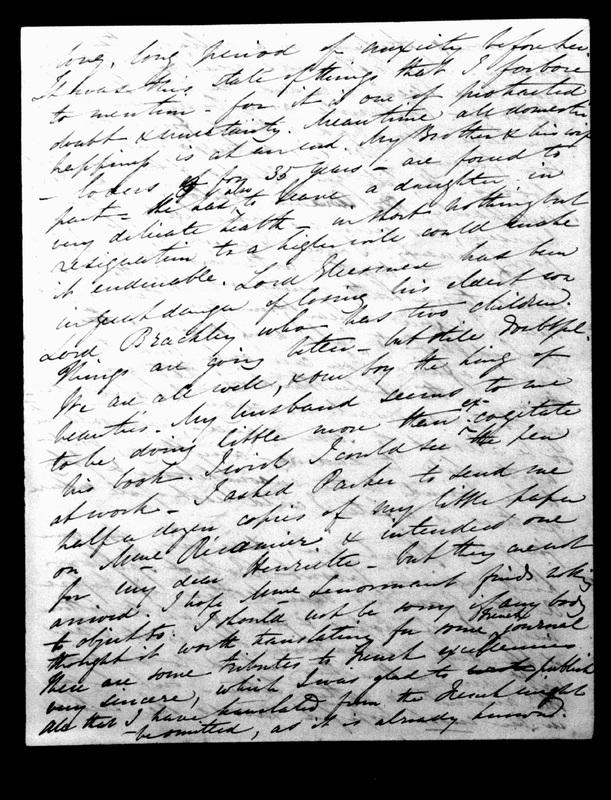 long, long period of anxiety before her.
It was this state of things that I forbore
to mention - for it is one of protracted
doubt & uncertainty. Meantime all domestic
happiness is at an end. My Brother & his wife
- lovers for 35 years - are forced to
part - He has also to leave a daughter in
very delicate health - in short nothing but
resignation to a higher will could make
it endurable. Lord Ellesmere has been
in great danger of losing his eldest son
Lord Brackley who has two children.
Things are going better - but still doubtful.
We are all well, & our boy the king of
beauties. My husband seems to me
to be doing little more than ex-cogitate
his book. I wish I could see the pen
at work - I asked Parker to send me
half a dozen copies of my little paper
on Mme Récamier & intended one
for my dear Henriette - but they are not
arrived. I hope Mme Lenormant finds nothing
to object to. I should not be sorry if any body
thought it worth translating for some French journal
There are some tributes to French excellencies
very sincere, which I was glad to publish
All that I have translated from the French might
be omitted, as it is already known.